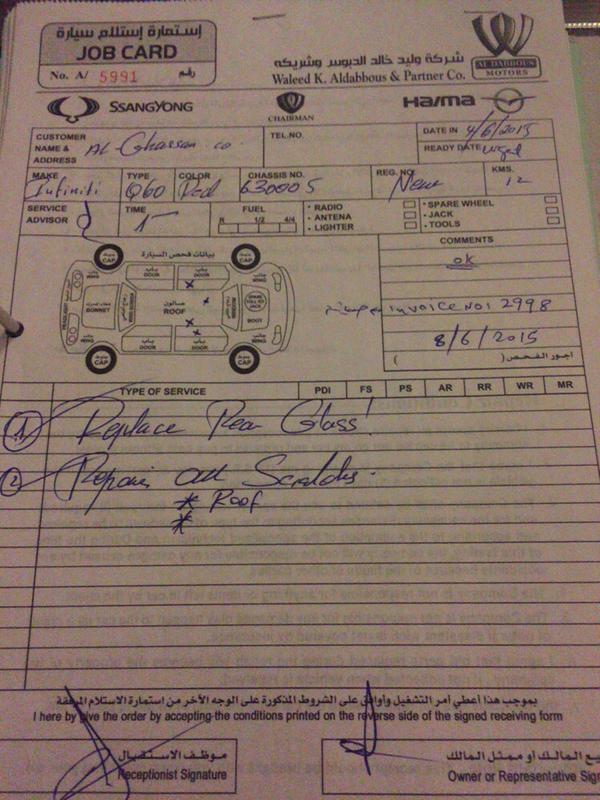 إستمارة إستلام سيارة
JOB CARD
No. A/ 5991 رقم
شركة وليد خالد الدبوس وشريكه
Waleed K. Aldabbous & Partner Co.
AL DABBOUS
MOTORS
SSANGYONG
CHAIRMAN
HAIMA
CUSTOMER NAME & ADDRESS AL Ghassan co.
TEL.NO.
DATE IN 4/6/2015
READY DATE
MAKE Infiniti
TYPE Q60
COLOR Red
CHASSIS NO. 630005
REG. NO. New
KMS. 12
SERVICE ADVISOR
TIME
FUEL
R 1/2 4/4
• RADIO
• ANTENA
• LIGHTER
• SPARE WHEEL
• JACK
• TOOLS
بيانات فحص السيارة
CAP
WING
باب
DOOR
باب
DOOR
CAP
WING
HEADLIGHT
BONNET
صالون
ROOF
WINDOW
BOOT
WING
DOOR
باب
DOOR
باب
WING
CAP
CAP
COMMENTS
OK
invoice NO: 2998
8/6/2015
( ) اجور الفحص
TYPE OF SERVICE PDI FS PS AR RR WR MR
1 Replace Rear Glass!
2 Repair all
* Roof
*
بموجب هذا أعطي أمر التشغيل وأوافق على الشروط المذكورة على الوجه الآخر من استمارة الاستلام المرفقة
I here by give the order by accepting the conditions printed on the reverse side of the signed receiving form
موظف الاستقبال
Receptionist Signature
المالك أو ممثل المالك
Owner or Representative